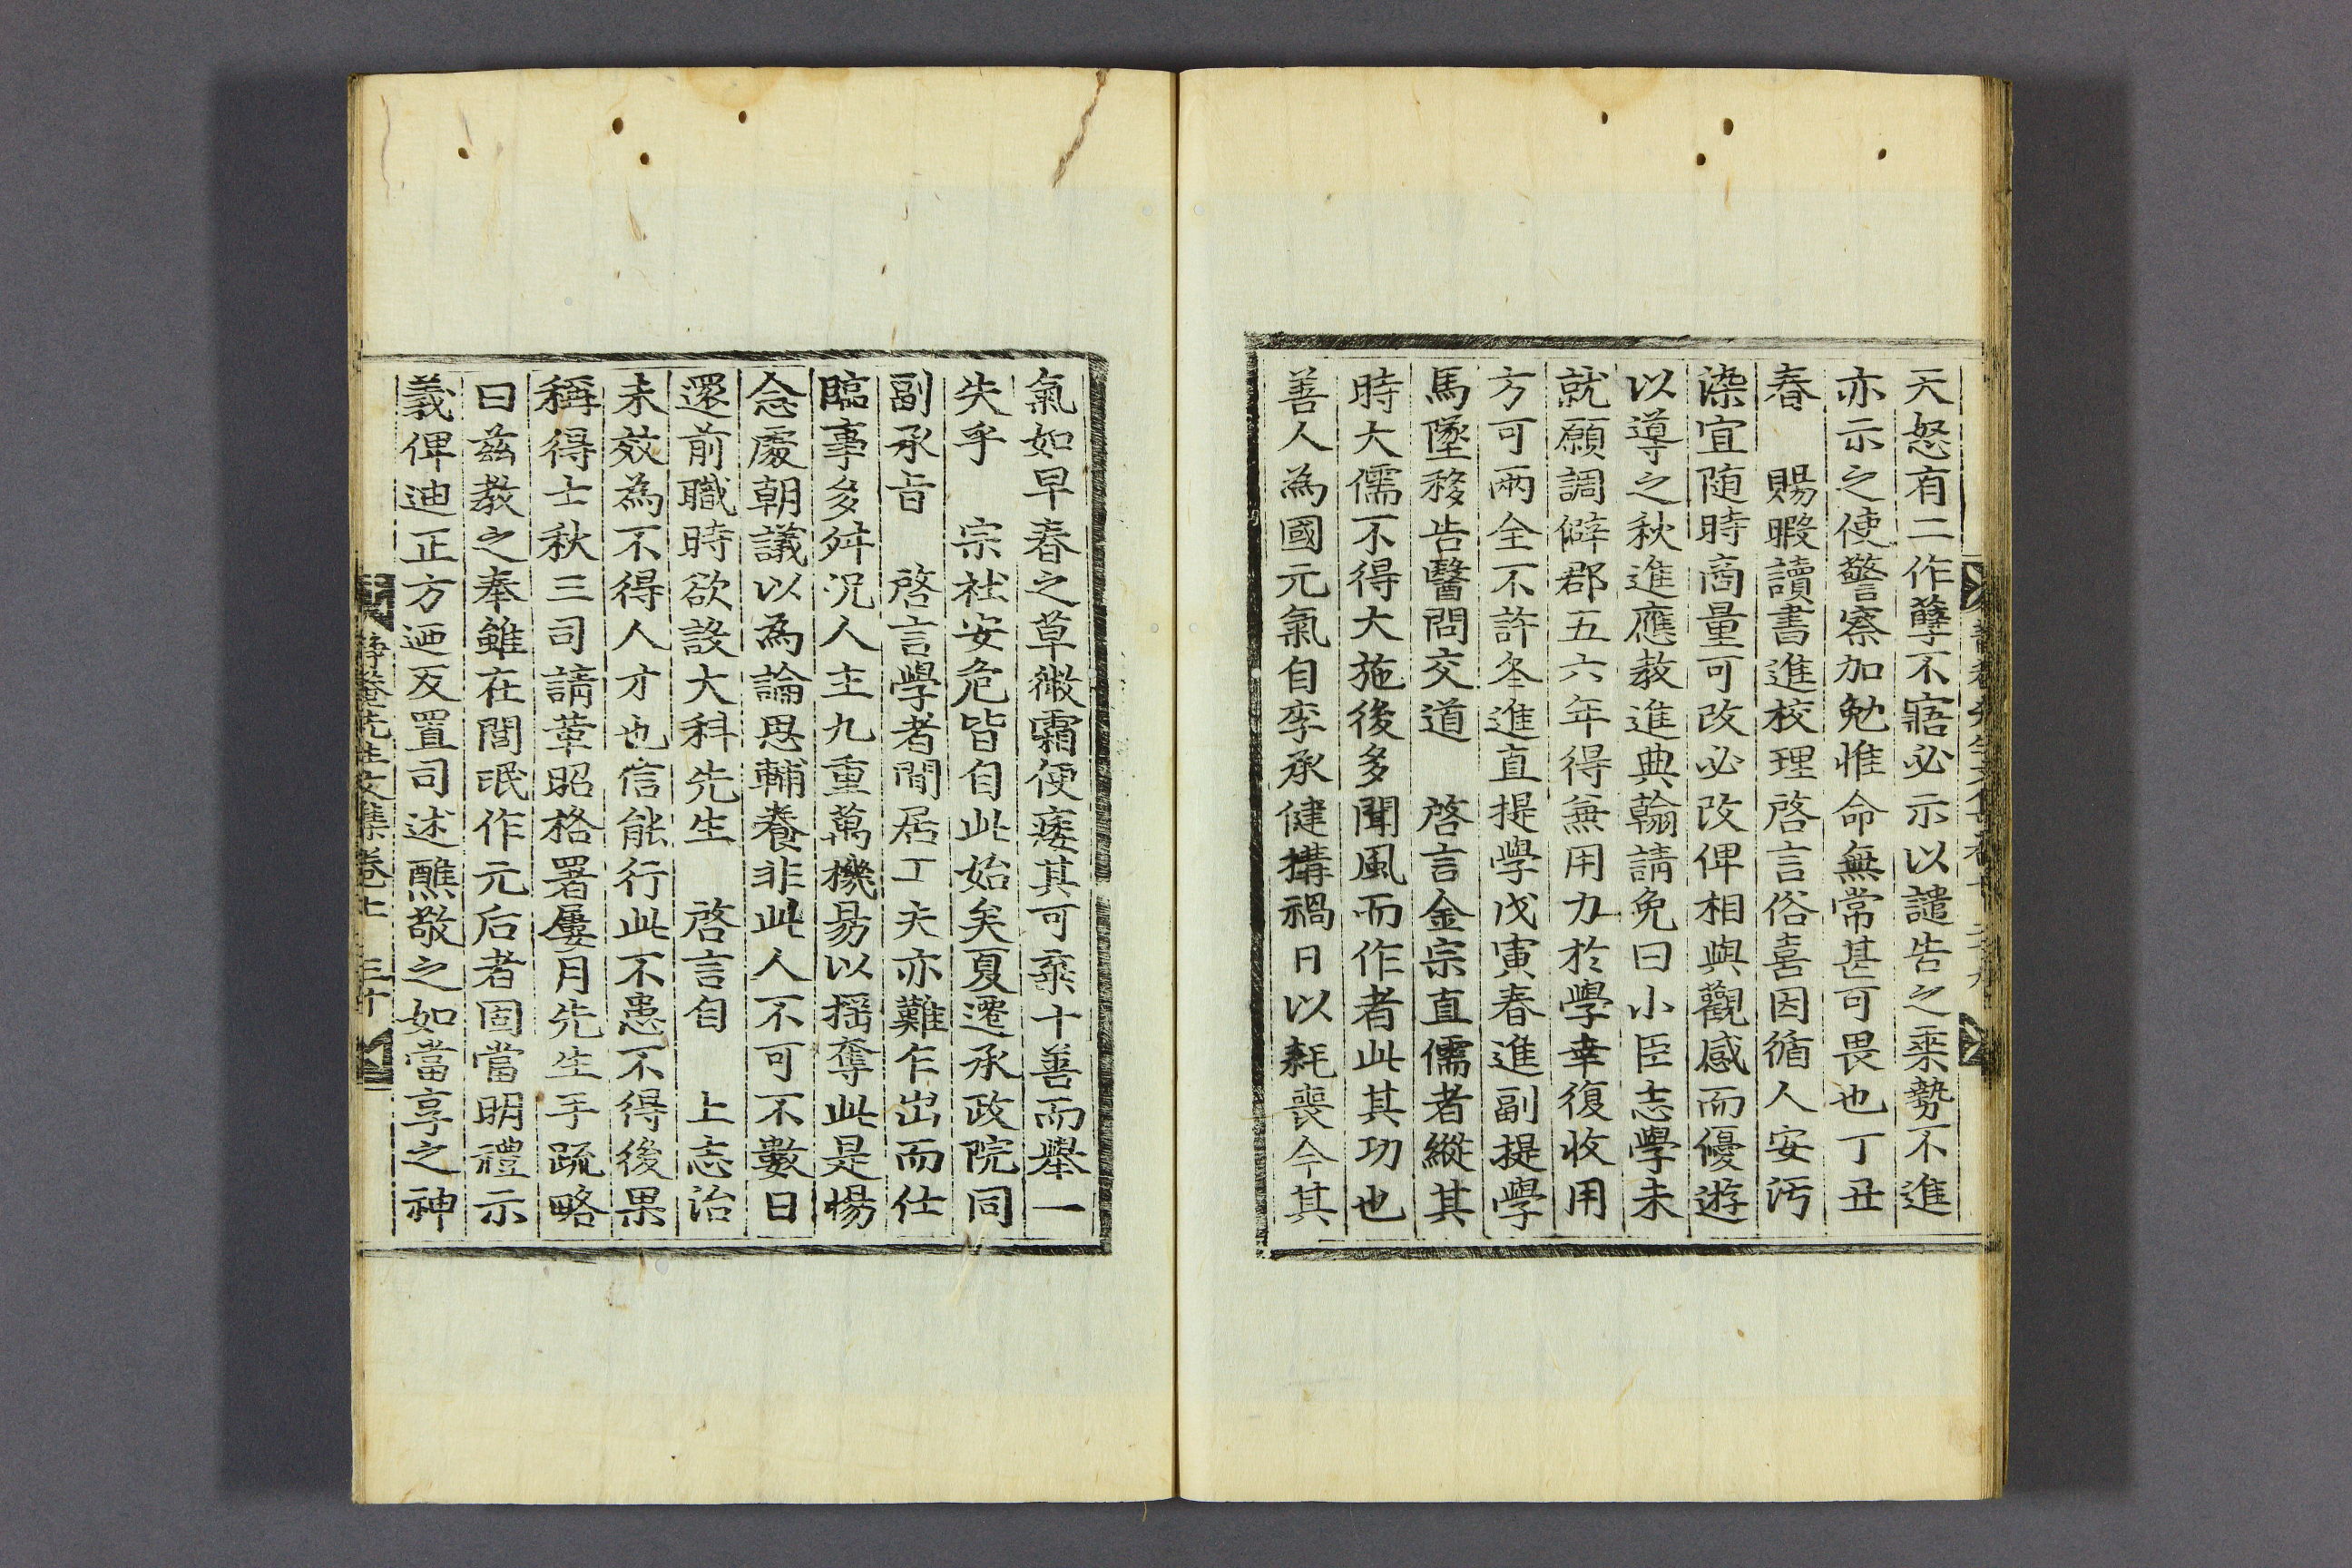 天怒有二作孽不寤必示以譴告之乘勢不進
亦示之使警察加勉惟命無常甚可畏也丁丑
春　賜暇讀書進校理啓言俗喜因循人安汚
染宜随時商量可改必改俾相與觀感而優遊
以導之秋進應敎進典翰請免曰小臣志學未
就願調僻郡五六年得無用力於學幸復收用
方可兩全不許冬進直提學戊寅春進副提學
馬墜移告醫問交道　啓言金宗直儒者縱其
時大儒不得大施後多聞風而作者此其功也
善人為國元氣自李承健搆禍日以耗喪今其
氣如早春之草微霜便萎其可棄十善而舉一
失乎　宗社安危皆自此始矣夏遷承政院同
副承旨　啓言學者閒居工夫亦難乍出而仕
臨事多舛况人主九重萬機易以揺奪此是惕
念處朝議以為論思輔養非此人不可不數日
還前職時欲設大科先生　啓言自　上志治
未效為不得人才也信能行此不患不得後果
稱得士秋三司請革昭格署屢月先生手疏略
曰茲敎之奉雖在閭氓作元后者固當明禮示
義俾迪正方迺反置司述醮敬之如當享之神
静菴先生文集卷七 三十